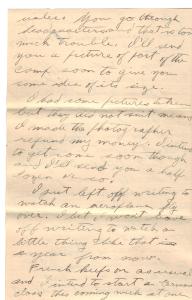 unless you go through
headquarters & that is too
much trouble. I'll send
you a picture of part of the
camp soon to give you
some idea of its size.
I had some pictures taken
but they was not much and
I made the photographer
refund my money. I intend
to get some soon though
and I'll send you a half
dozen or so.
I just left off writing to
watch an aeroplane fly
over. I bet I won't leave
off writing to watch a
little thing like that is
a year from now.
French keeps on as usual
and I intend to start a German
class this coming week at our